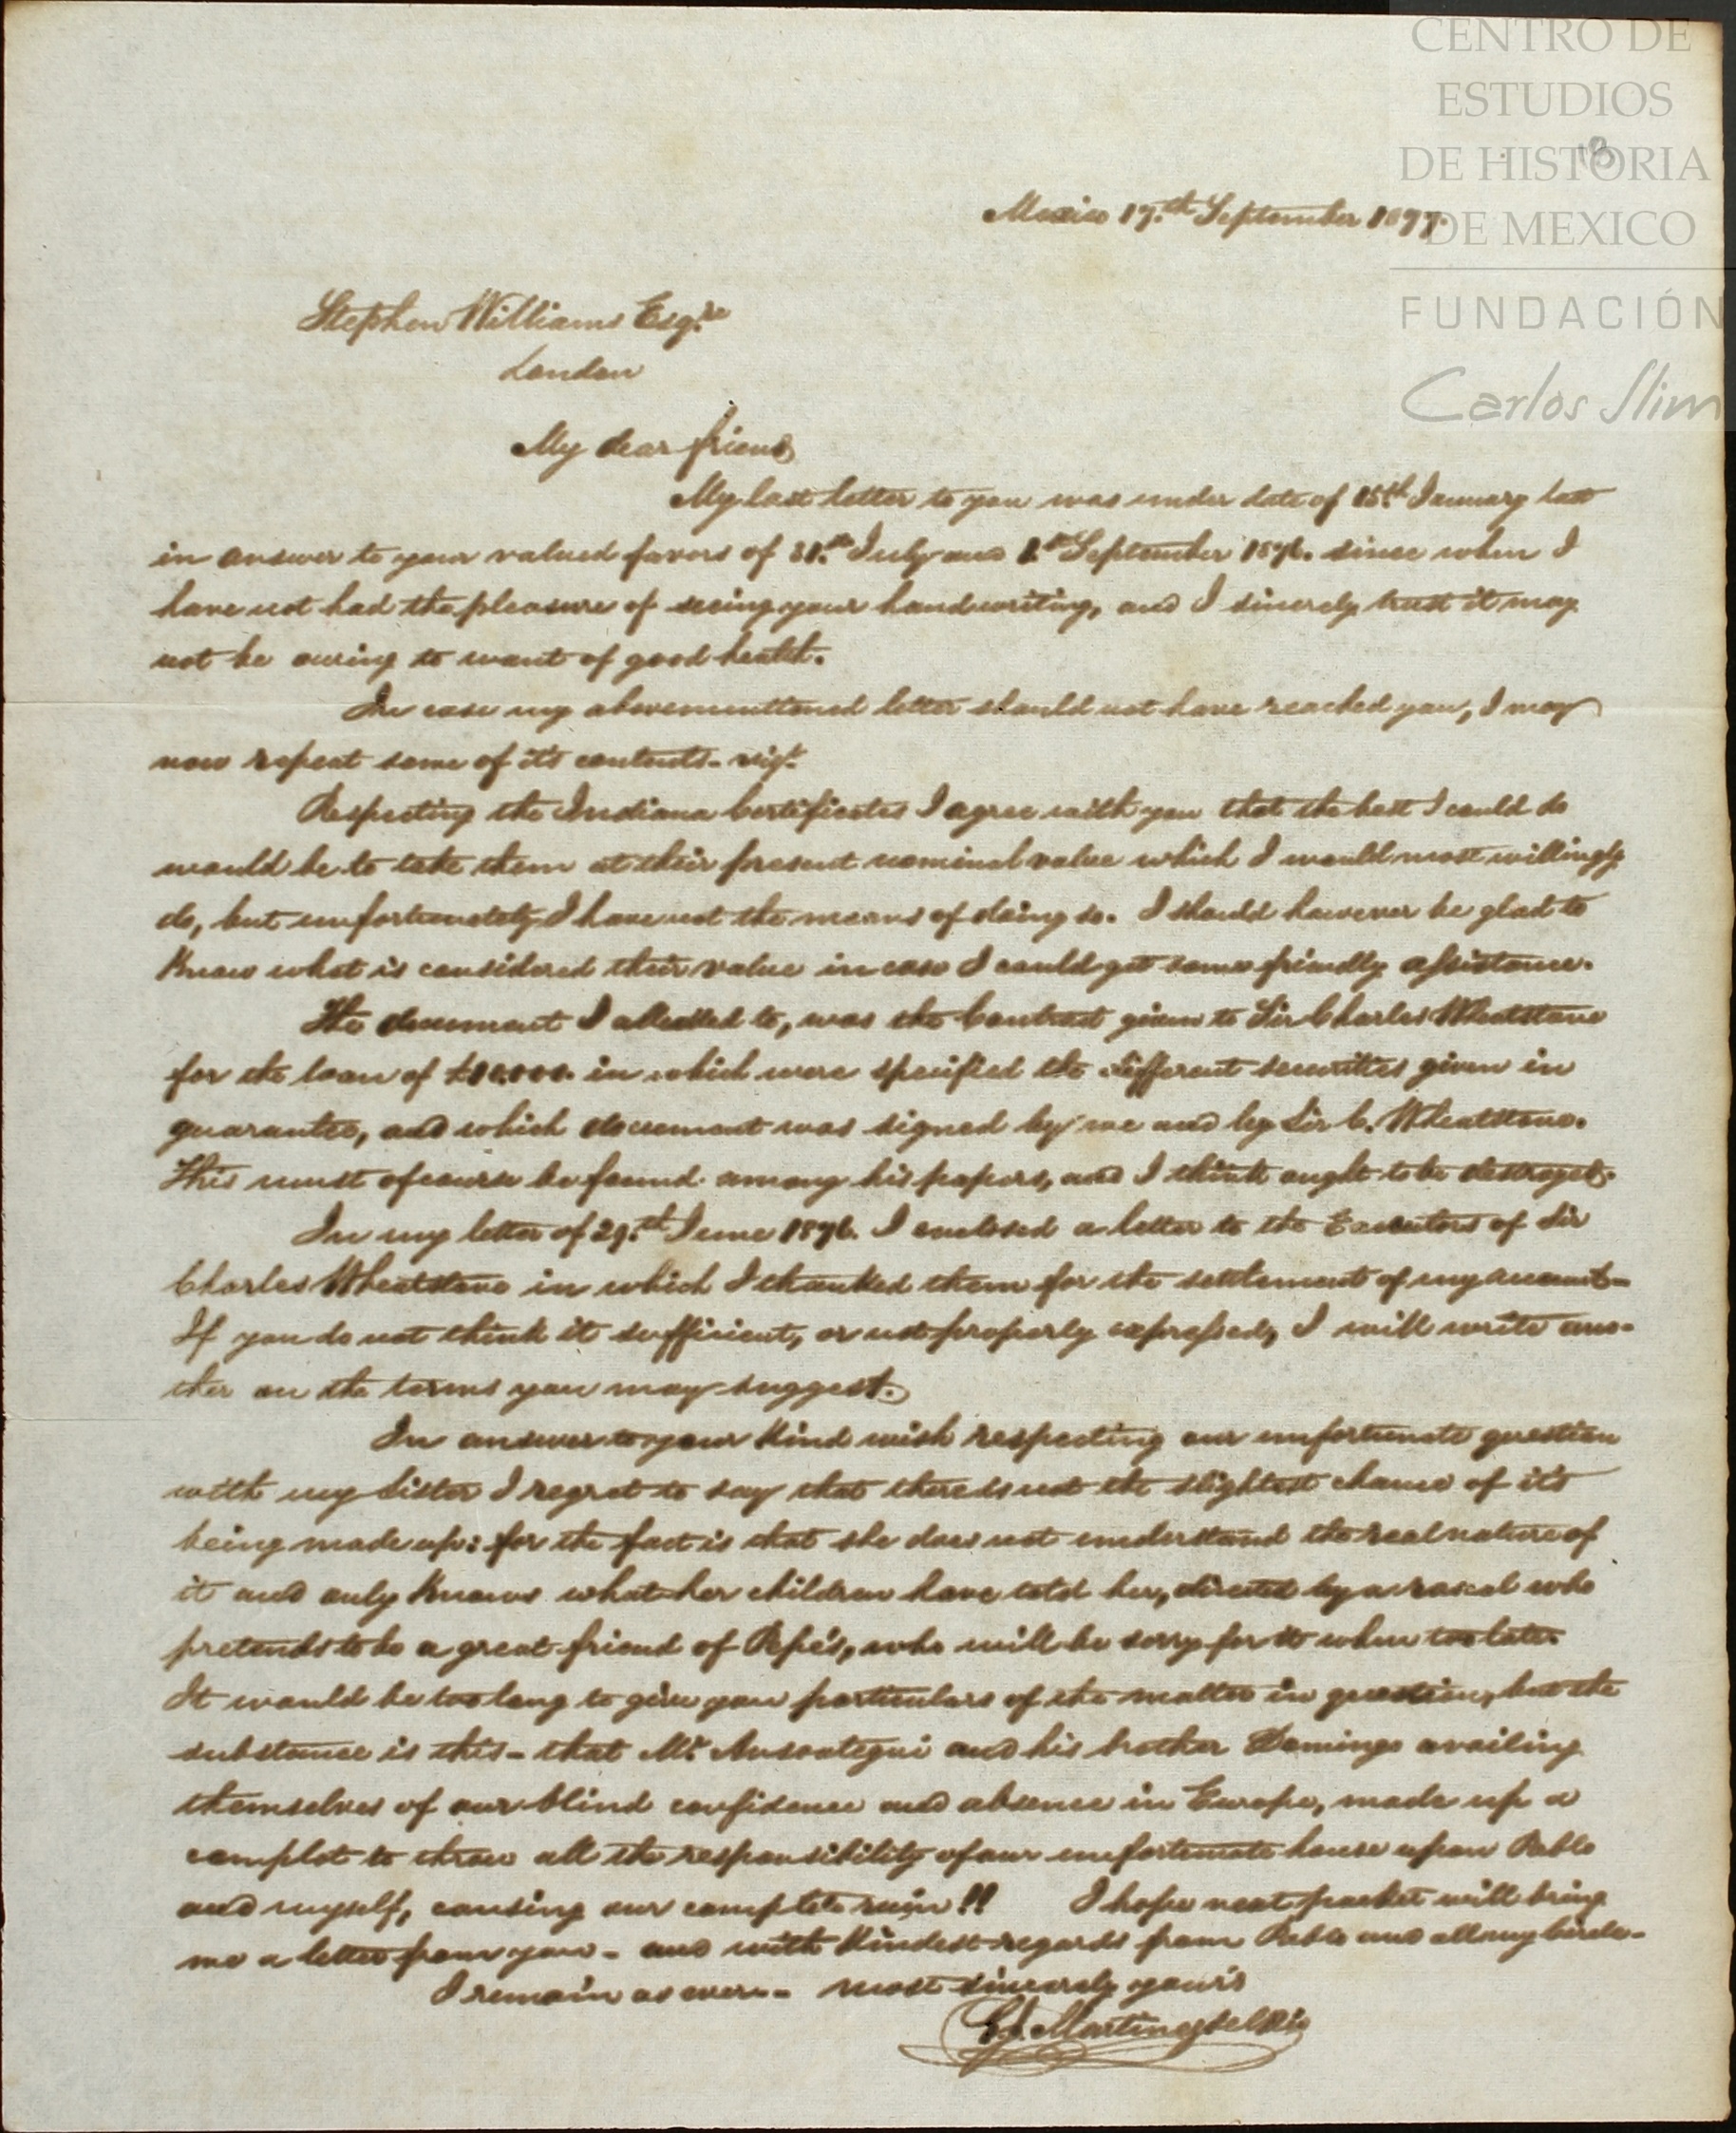 CENTRO DE
ESTUDIOS
DE HISTORIA
DE MEXICO
FUNDACIÓN
Carlos Slim
18
Mexico 17.th September 1877.
Stephen Williams Esq.re
London
My dear friend
My last letter to you was under date of 15.th January last
in answer to your valued favors of 31.st July and 1.st September 1876. since when I
have not had the pleasure of seeing your handwriting, and I sincerely trust it may
not be owing to want of good health.
In case my abovementioned letter should not have reached you, I may
now repeat some of it's contents - viz.t
Respecting the Indiana Certificates I agree with you that the best I could do
would be to take them at their present nominal value which I would most willingly
do, but unfortunately I have not the means of doing so. I should however be glad to
Know what is considered their value in case I could get some friendly assistance.
The document I alluded to, was the Contract given to Sir Charles Wheatstone
for the loan of £10.000. in which were specified the different securities given in
guarantee, and which document was signed by me and by Sir C. Wheatstone.
This must of course be found among his papers, and I think ought to be destroyed.
In my letter of 29.th June 1876. I enclosed a letter to the Executors of Sir
Charles Wheatstone in which I thanked them for the settlement of my account -
If you do not think it sufficient, or not properly expressed, I will write ano-
ther on the terms you may suggest.
In answer to your Kind wish respecting our unfortunate question
with my Sister I regret to say that there is not the slightest chance of it's
being made up: for the fact is that she does not understand the real nature of
it and only Knows what her children have told her, directed by a rascal who
pretends to be a great friend of Pepe's, who will be sorry for it when too late.
It would be too long to give you particulars of the matter in question, but the
substance is this - that Mr. Ansoategui and his brother Domingo availing
themselves of our blind confidence and absence in Europe, made up a
complot to throw all the responsibility of our unfortunate house upon Pablo
and myself, causing our complete ruin!! I hope next packet will bring
me a letter from you - and with Kindest regards from Pablo and all my circle -
I remain as ever - most sincerely your's
G. Martinez del Rio